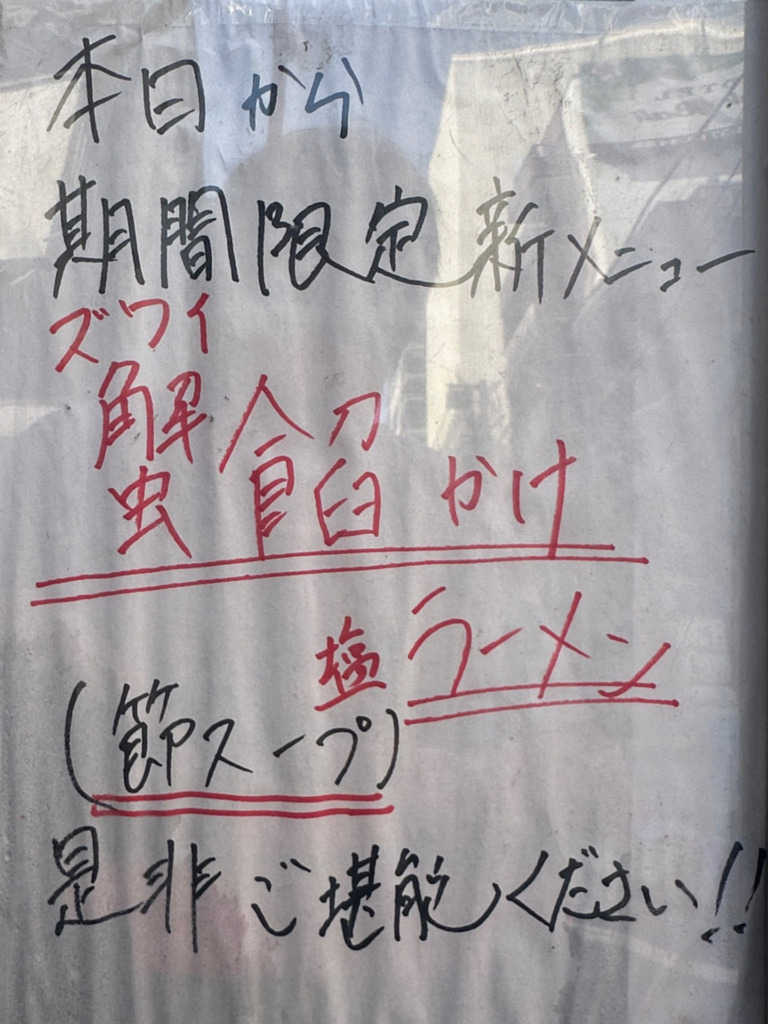 本日から
期間限定新メニュー
ズワイ
蟹餡かけ
塩ラーメン
(節スープ)
是非ご堪能ください!!